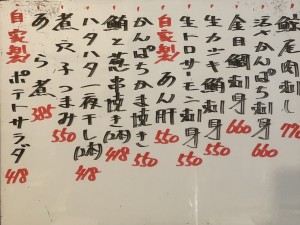 鯨尾肉刺し 770
活〆かんぱち刺身 660
金目鯛刺身 660
生カツオ刺身 550
生トロサーモン刺身 550
自家製 あん肝 550
かんぱちかま焼き 550
鮪と葱串焼き(2本) 418
ハタハタ一夜干し(2本) 418
煮穴子つまみ 550
あら煮 385
自家製 ポテトサラダ 418